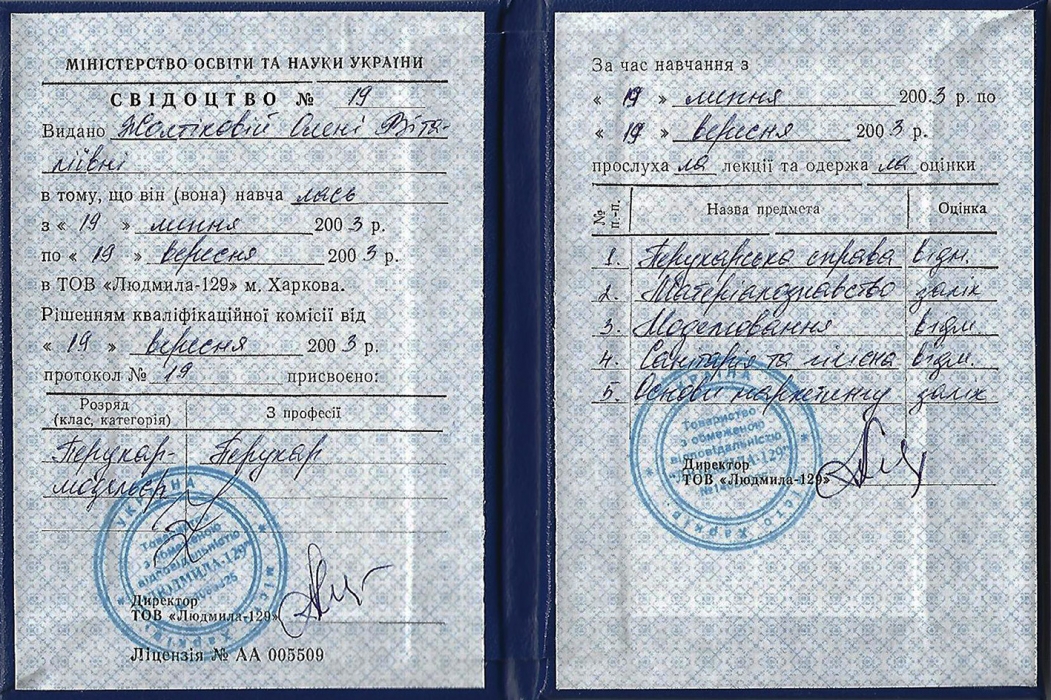 МІНІСТЕРСТВО ОСВІТИ ТА НАУКИ УКРАЇНИ
СВІДОЦТВО № 19
Видано Жолтіковій Олені Віта-
ліївні
в тому, що він (вона) навча лась
з « 19 » липня 200 3 р.
по « 19 » вересня 200 3 р.
в ТОВ «Людмила-129» м. Харкова.
Рішенням кваліфікаційної комісії від
« 19 » вересня 200 3 р.
протокол № 19 присвоєно:
Розряд
(клас, категорія)
З професії
Перукар-
модельєр
Перукар
УКРАЇНА
Товариство
з обмеженою
відповідальністю
"ЛЮДМИЛА-129"
місто Харків
Директор
ТОВ «Людмила-129»
Ліцензія № АА 005509
За час навчання з
« 19 » липня 200 3 р. по
« 19 » вересня 200 3 р.
прослуха ла лекції та одержа ла оцінки
№ п.-п. Назва предмета Оцінка
1. Перукарська справа відм.
2. Матеріалознавство залік
3. Моделювання відм.
4. Санітарія та гігієна відм.
5. Основи маркетингу залік
УКРАЇНА
Товариство
з обмеженою
відповідальністю
"ЛЮДМИЛА-129"
місто Харків
Директор
ТОВ «Людмила-129»